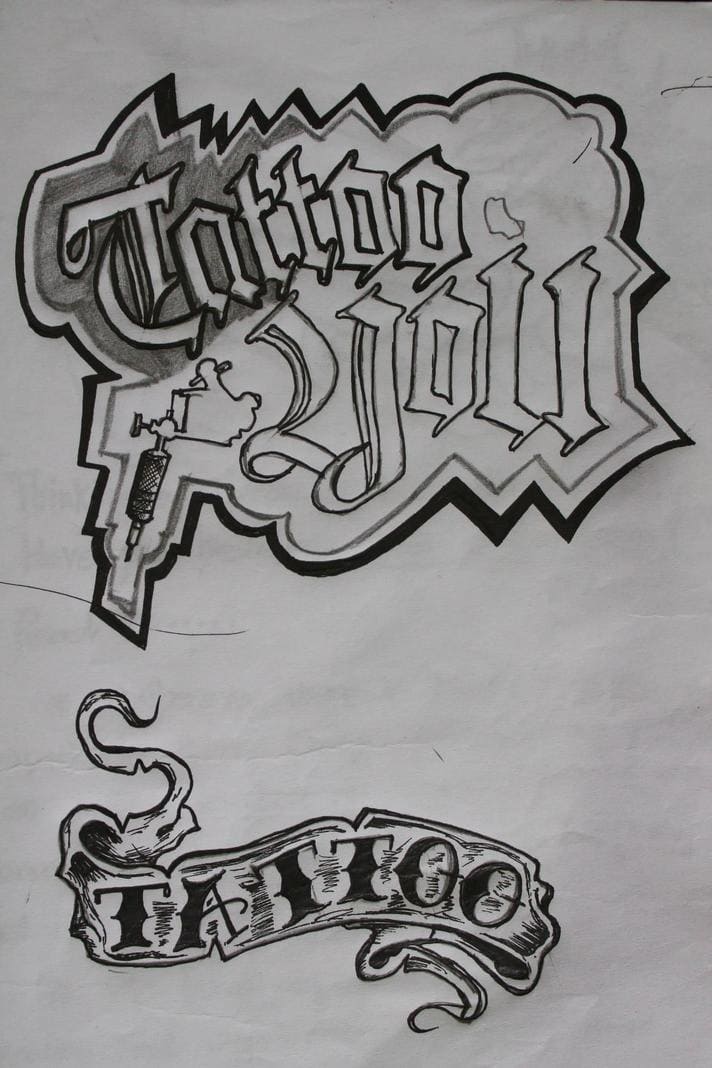 Tattoo
You
TATTOO